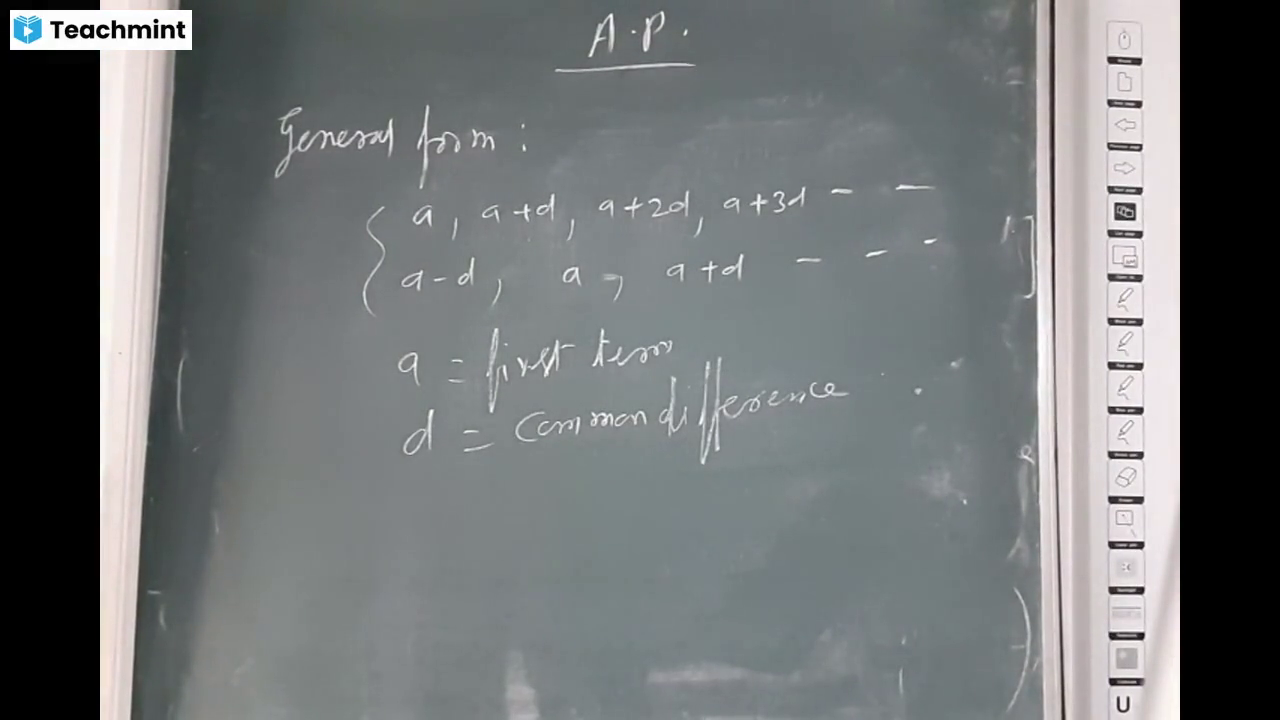 Teachmint
A.P.
General form:
a, a+d, a+2d, a+3d - -
a-d, a, a+d - - -
a = first term
d = Common difference
U